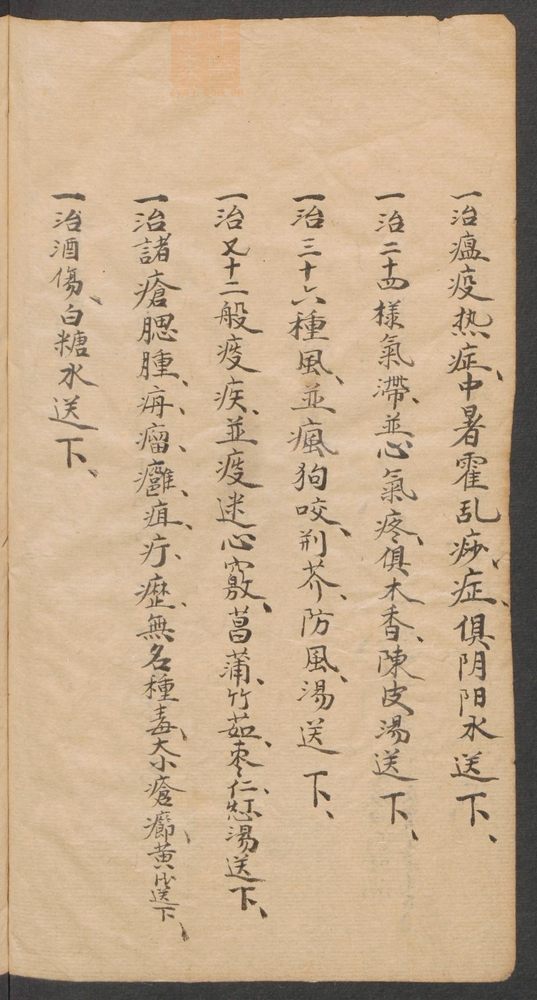 一治瘟疫热症、中暑霍乱痧症、俱阴阳水送下、
一治二十四様氣滯、並心氣疼、俱木香、陳皮湯送下、
一治三十六種風、並瘋狗咬、荆芥、防風湯送下、
一治又十二般疫疾、並疫迷心竅、菖蒲、竹茹、棗仁、湯送下、
一治諸瘡腮腫、痗、瘤、癰、疽、疔、瘞、無名種毒、大小瘡癤、黃送下、
一治酒傷、白糖水送下、